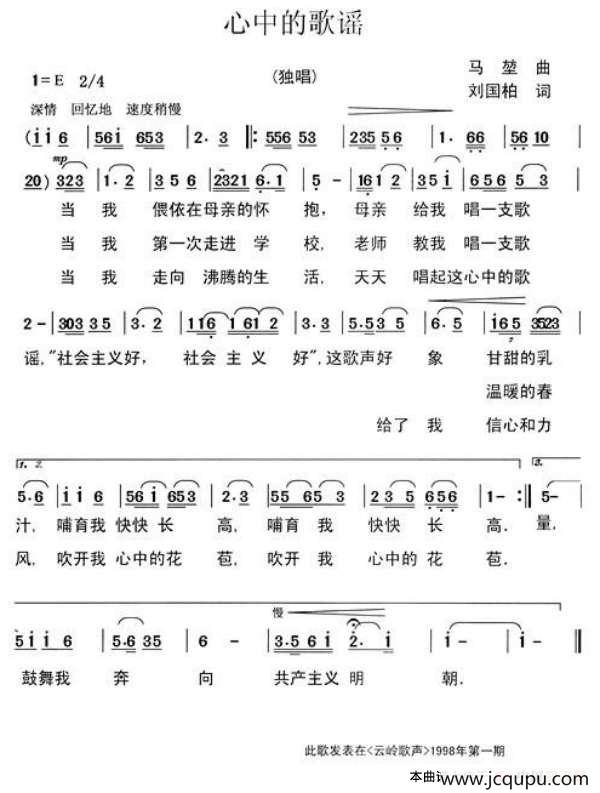 心中的歌谣
1=E 2/4
(独唱)
马 堃 曲
刘国柏 词
深情 回忆地 速度稍慢
(i i 6 | 561 653 | 2. 3 ‖: 556 53 | 235 56 | 1. 66 | 56 10 |
mp
20) 323 | 1. 2 | 3 5 6 | 2321 6. 1 | 5 - | 161 2 | 35 i | 656 5 3 |
当 我 偎依在母亲的怀 抱, 母亲 给我 唱一支歌
当 我 第一次走进 学 校, 老师 教我 唱一支歌
当 我 走向 沸腾的生 活, 天天 唱起这心中的歌
2- | 303 35 | 3. 2 | 116 1 61 2 | 3. 3 | 5. 53 5 | 6. 5 | i65 3523 |
谣,"社会主义好, 社会 主 义 好",这歌声好 象 甘甜的乳
温暖的春
给了 我 信心和力
1. 2.
3.
5. 6 | i i 6 | 56 i 653 | 2. 3 | 55 65 3 | 2 3 5 | 656 | 1- :‖ 5- |
汁, 哺育我 快快 长 高, 哺育 我 快快 长 高. 量,
风, 吹开我 心中的 花 苞, 吹开 我 心中的 花 苞.
慢
5 i i 6 | 5. 6 35 | 6 - | 3. 5 6 i | 2. i | i - | i - ‖
鼓舞我 奔 向 共产主义 明 朝.
此歌发表在<云岭歌声>1998年第一期
本曲
www.jcqupu.com